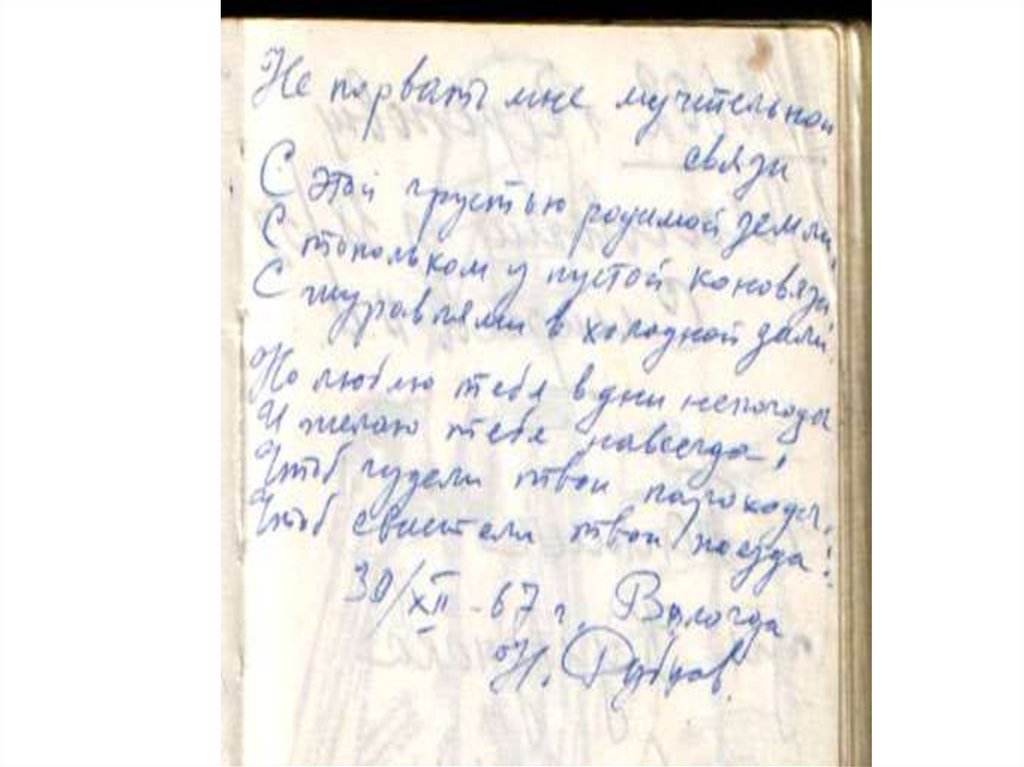 Не порвать мне мучительной
связи
С этой грустью родимой земли,
С топольком у пустой коновязи
С журавлями в холодной дали.
Но люблю тебя в дни непогоды
И желаю тебе навсегда,
Чтоб гудели твои пароходы,
Чтоб свистели твои поезда!
30/XII - 67 г. Вологда
Н. Рубцов.